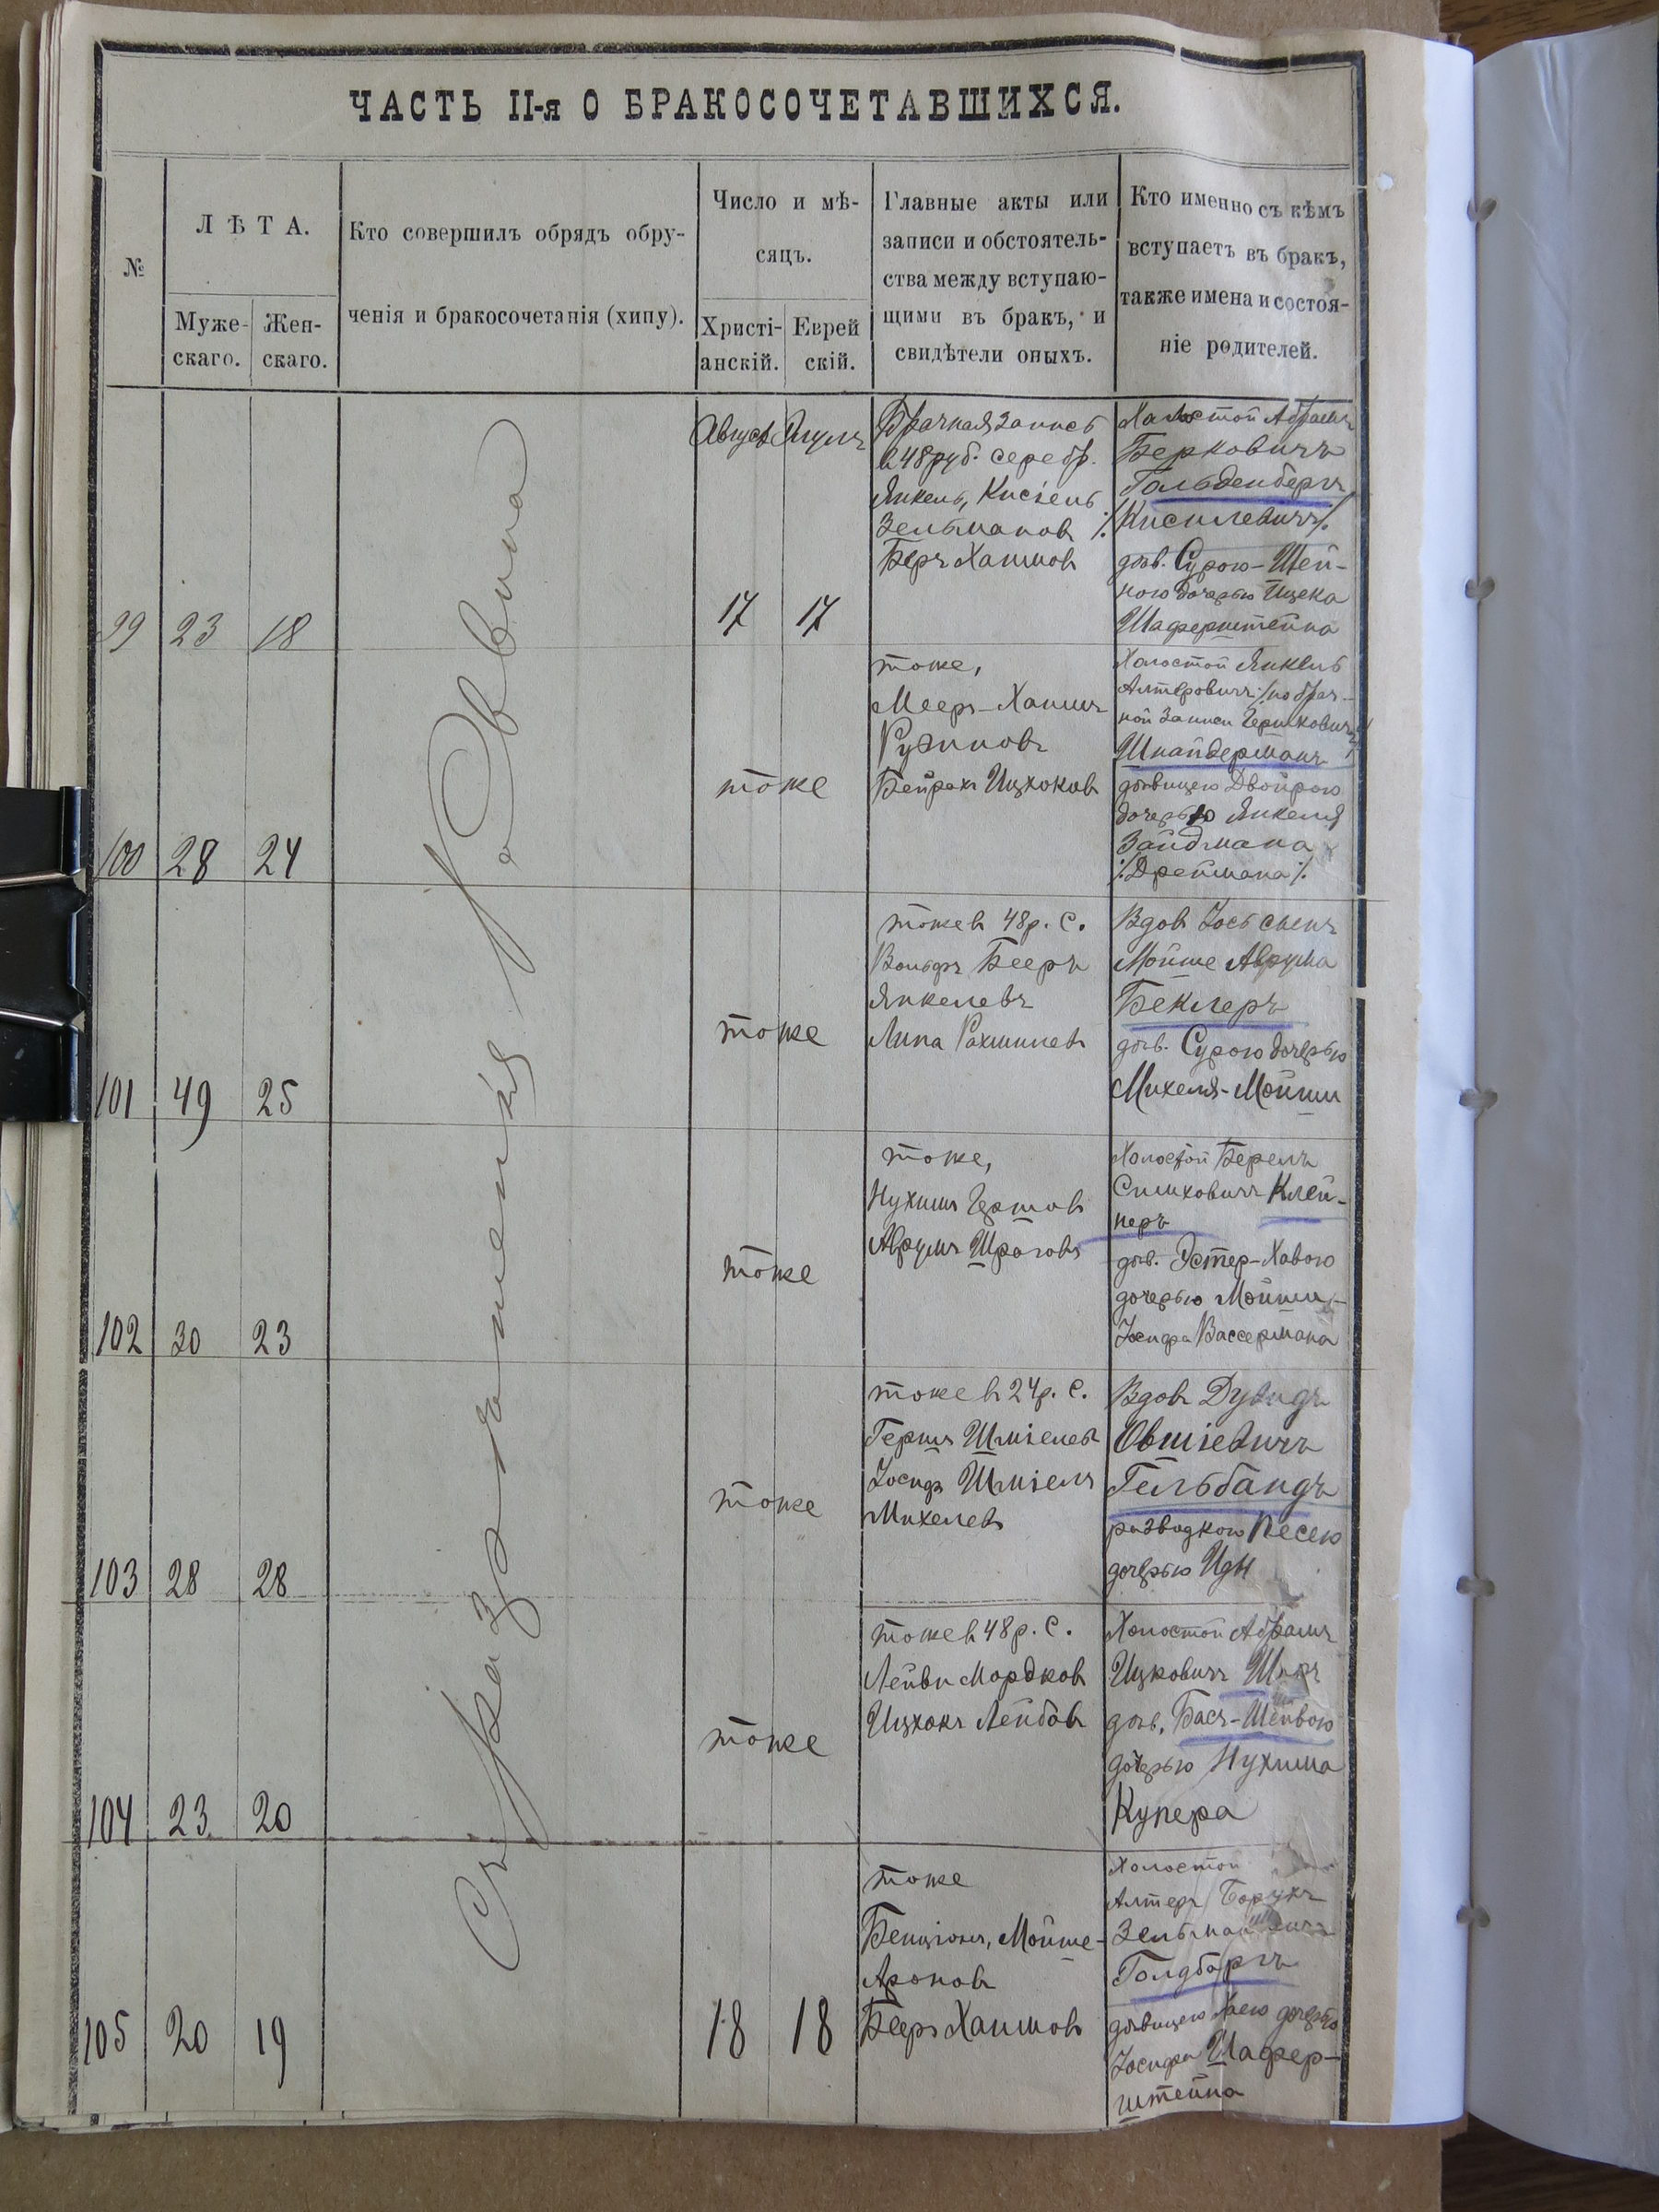 ЧАСТЬ II-я О БРАКОСОЧЕТАВШИХСЯ.
№
ЛѢТА.
Муже-
скаго.
Жен-
скаго.
Кто совершилъ обрядъ обру-
ченія и бракосочетанія (хипу).
Число и мѣ-
сяцъ.
Христі-
анскій.
Еврей
скій.
Главные акты или
записи и обстоятель-
ства между вступаю-
щими въ бракъ, и
свидѣтели оныхъ.
Кто именно съ кѣмъ
вступаетъ въ бракъ,
также имена и состоя-
ніе родителей.
99 23 18
Август
17 17
Брачная запись
в 48 руб. серебр.
Янкель, Кисіель
Зельманов
Беръ Хаимов
Холостой Абрамъ
Берковичъ
Гольденбергъ
/Кисилевичъ/.
дѣв. Сурою-Шей-
ною дочерью Ицека
Шаферштейна
100 28 24
тоже
тоже,
Мееръ-Хаимъ
Рузинов
Бейрахъ Ицхоков
Холостой Янкель
Алтеровичъ /по брач-
ной записи Гершковичъ/
Шнайдерманъ
дѣвицею Двойрою
дочерью Янкеля
Зайдмана
/Дреймана/.
101 49 25
тоже
тоже в 48 р. С.
Вольфъ Бееръ
Янкелевъ
Липа Рахмилев
Вдов Іось сынъ
Мойше Аврума
Беклеръ
дѣв. Сурою дочерью
Михеля-Мойши
102 30 23
тоже
тоже,
Нухимъ
Аврумъ Шрагов
Холостой Берель
Симховичъ Клей-
неръ
дѣв. Эстер-Хавою
дочерью Мойши-
Іосифа Вассермана
103 28 28
тоже
тоже в 24 р. С.
Гершъ Шміелев
Іосифъ Шміель
Михелев
Вдов Дувидъ
Овшіевичъ
Гельбандъ
разводкою Песею
дочерью Иды
104 23 20
тоже
тоже в 48 р. С.
Лейви Мордков
Ицхокъ Лейбов
Холостой Абрамъ
Ицковичъ
дѣв. Бася-Шейвою
дочерью Нухима
Купера
105 20 19
18 18
тоже
Бенціонъ, Мойше-
Аронов
Бееръ Хаимов
Холостой
Алтеръ Борухъ
Голдбаргъ
дѣвицею Хаею дочерью
Іосифа Шафер-
штейна
Съ разрѣшенія Раввина